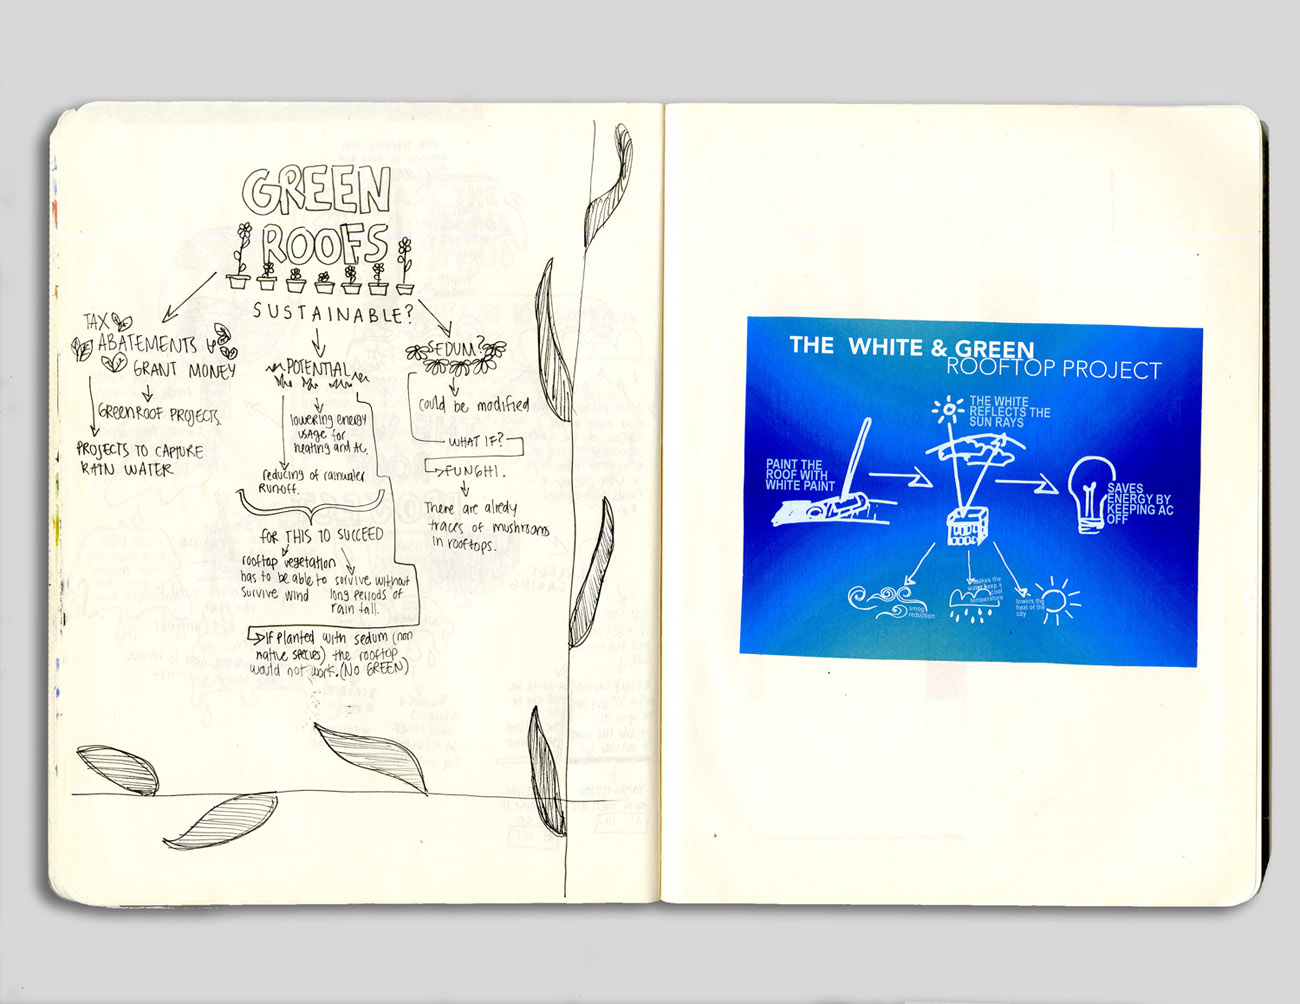 GREEN
ROOFS
SUSTAINABLE?
TAX
ABATEMENTS
GRANT MONEY
GREENROOF PROJECTS
PROJECTS TO CAPTURE
RAIN WATER
POTENTIAL
lowering energy
usage for
heating and AC.
reducing of rainwater
Runoff.
FOR THIS TO SUCCEED
rooftop vegetation
has to be able to
survive wind
survive without
long periods of
rain fall.
If planted with sedum (non
native species) the rooftop
would not work. (NO GREEN)
SEDUM?
could be modified
WHAT IF?
FUNGHI.
There are alredy
traces of mushrooms
in rooftops.
THE WHITE & GREEN
ROOFTOP PROJECT
THE WHITE
REFLECTS THE
SUN RAYS
PAINT THE
ROOF WITH
WHITE PAINT
SAVES
ENERGY BY
KEEPING AC
OFF
smog
reduction
makes the
water keep a
cool
temperature
lowers the
heat of the
city